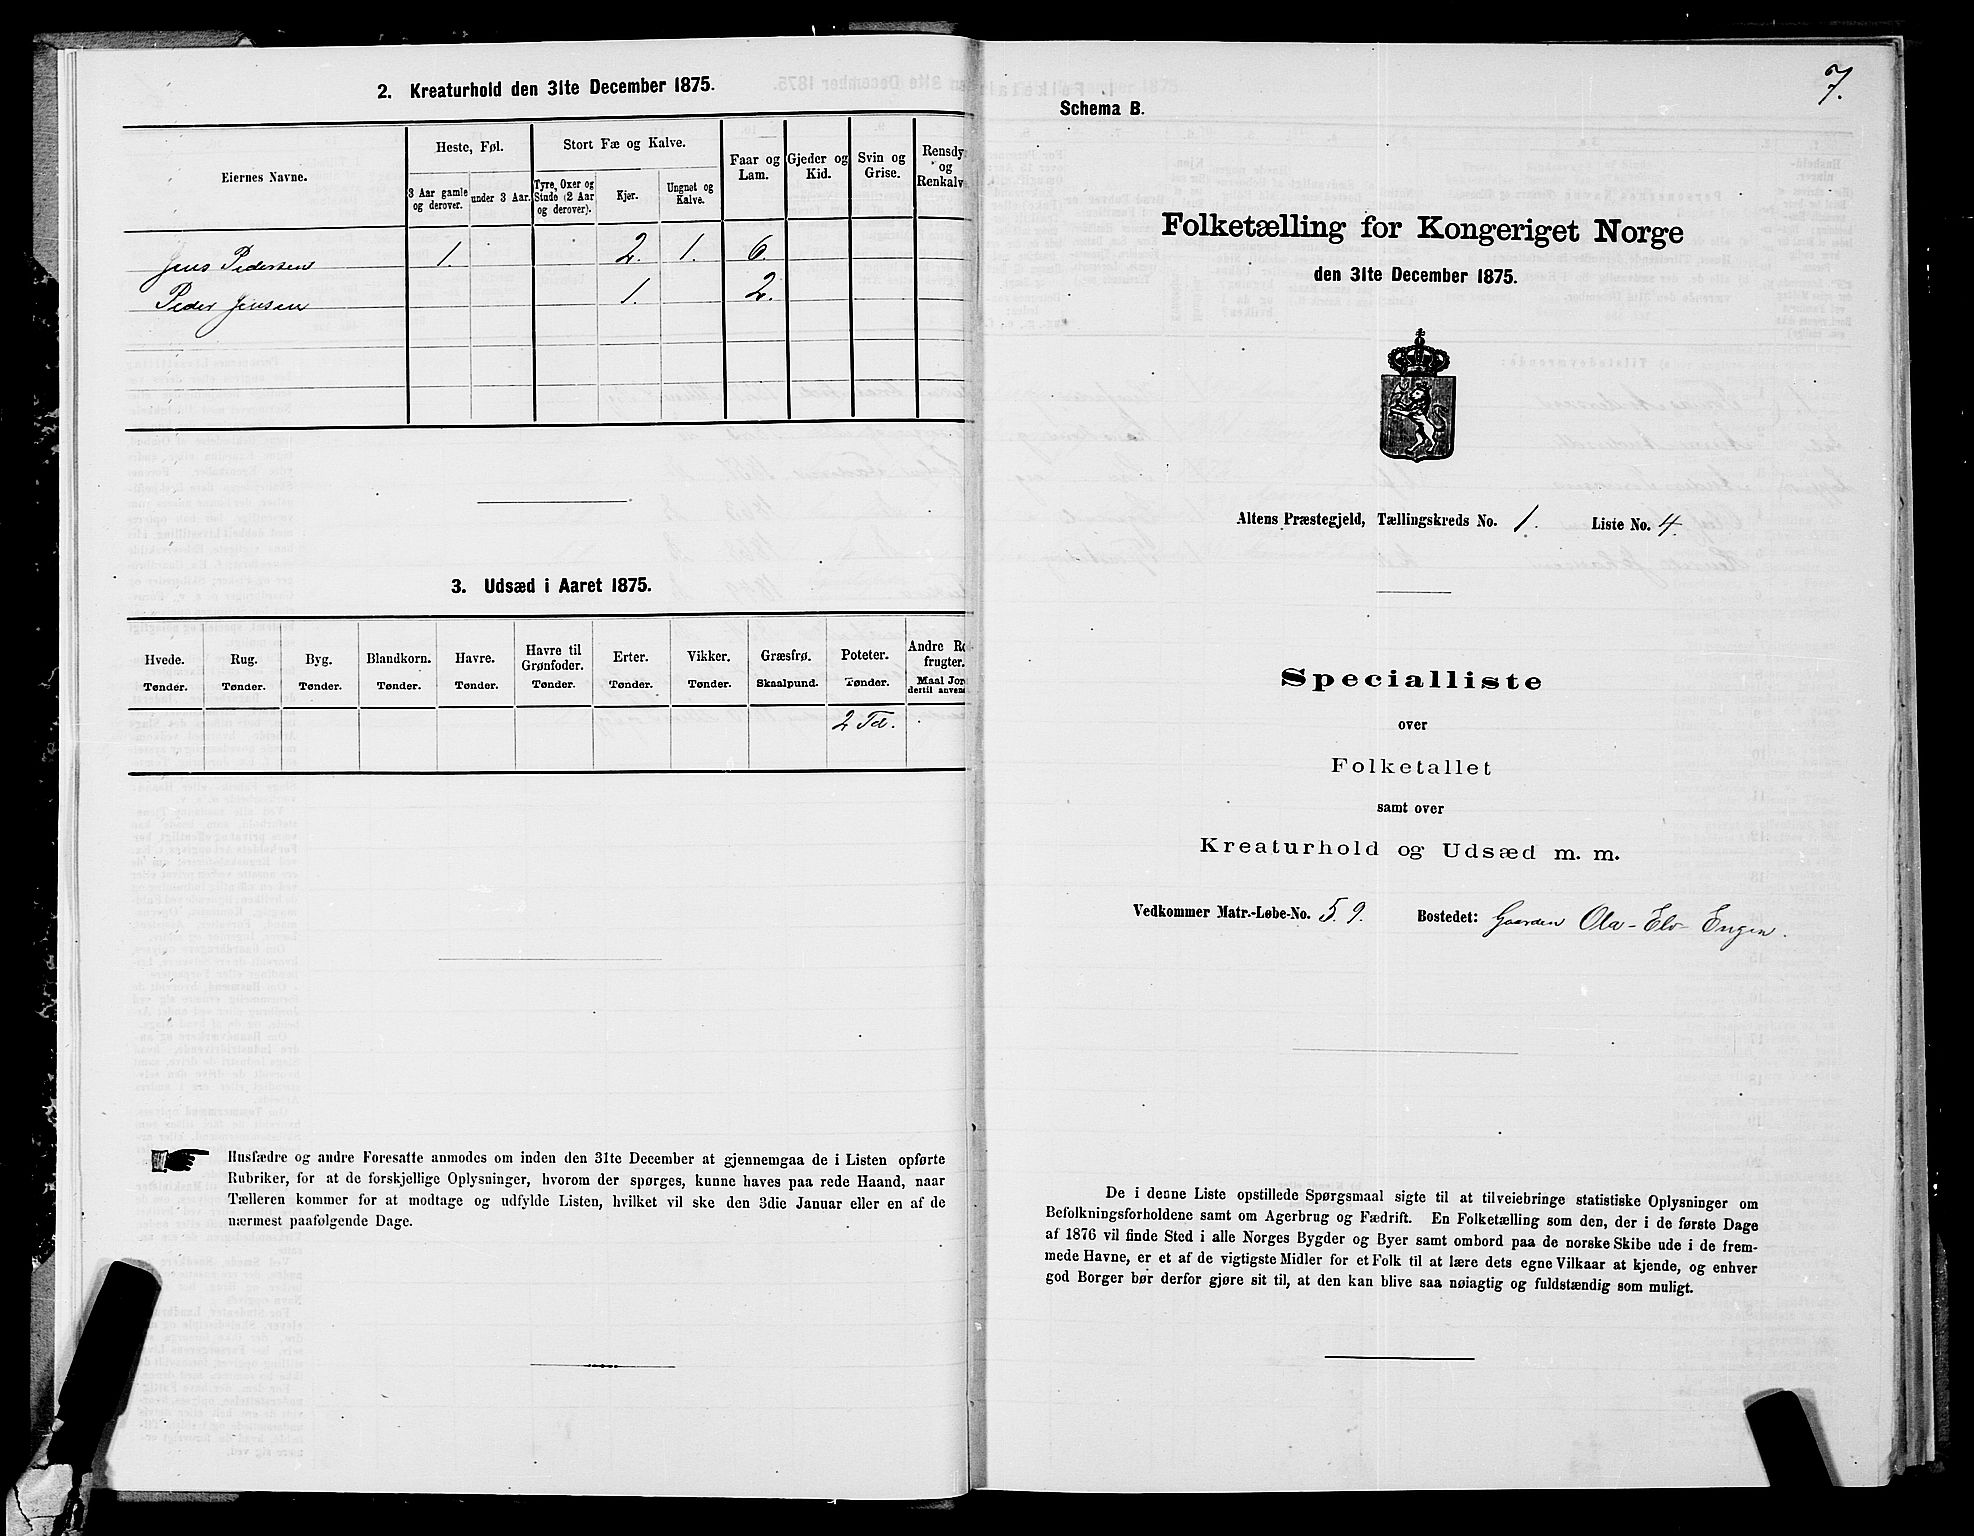 2. Kreaturhold den 31te December 1875.
Eiernes Navne.
Heste, Føl.
Stort Fæ og Kalve.
Faar og Lam.
Gjeder og Kid.
Svin og Grise.
Rensdyr og Renkalve
3 Aar gamle og derover.
under 3 Aar.
Tyre, Oxer og Stude (2 Aar og derover).
Kjør.
Ungnøt og Kalve.
Jens Pedersen 1. 2. 1. 6.
Peder Jensen 1. 2.
3. Udsæd i Aaret 1875.
Hvede. Rug. Byg. Blandkorn. Havre. Havre til Grønfoder. Erter. Vikker. Græsfrø. Poteter. Andre Rod-frugter.
Tønder. Tønder. Tønder. Tønder. Tønder. Tønder. Tønder. Tønder. Skaalpund. Tønder. Maal Jord dertil anvendt
2 Td.
Husfædre og andre Foresatte anmodes om inden den 31te December at gjennemgaa de i Listen opførte
Rubriker, for at de forskjellige Oplysninger, hvorom der spørges, kunne haves paa rede Haand, naar
Tælleren kommer for at modtage og udfylde Listen, hvilket vil ske den 3die Januar eller en af de
nærmest paafølgende Dage.
7.
Schema B.
Folketælling for Kongeriget Norge
den 31te December 1875.
Altens Præstegjeld, Tællingskreds No. 1. Liste No. 4.
Specialliste
over
Folketallet
samt over
Kreaturhold og Udsæd m. m.
Vedkommer Matr.-Løbe-No. 59. Bostedet: Gaarden Ola-Elv-Engen.
De i denne Liste opstillede Spørgsmaal sigte til at tilveiebringe statistiske Oplysninger om
Befolkningsforholdene samt om Agerbrug og Fædrift. En Folketælling som den, der i de første Dage
af 1876 vil finde Sted i alle Norges Bygder og Byer samt ombord paa de norske Skibe ude i de frem-
mede Havne, er et af de vigtigste Midler for et Folk til at lære dets egne Vilkaar at kjende, og enhver
god Borger bør derfor gjøre sit til, at den kan blive saa nøiagtig og fuldstændig som muligt.